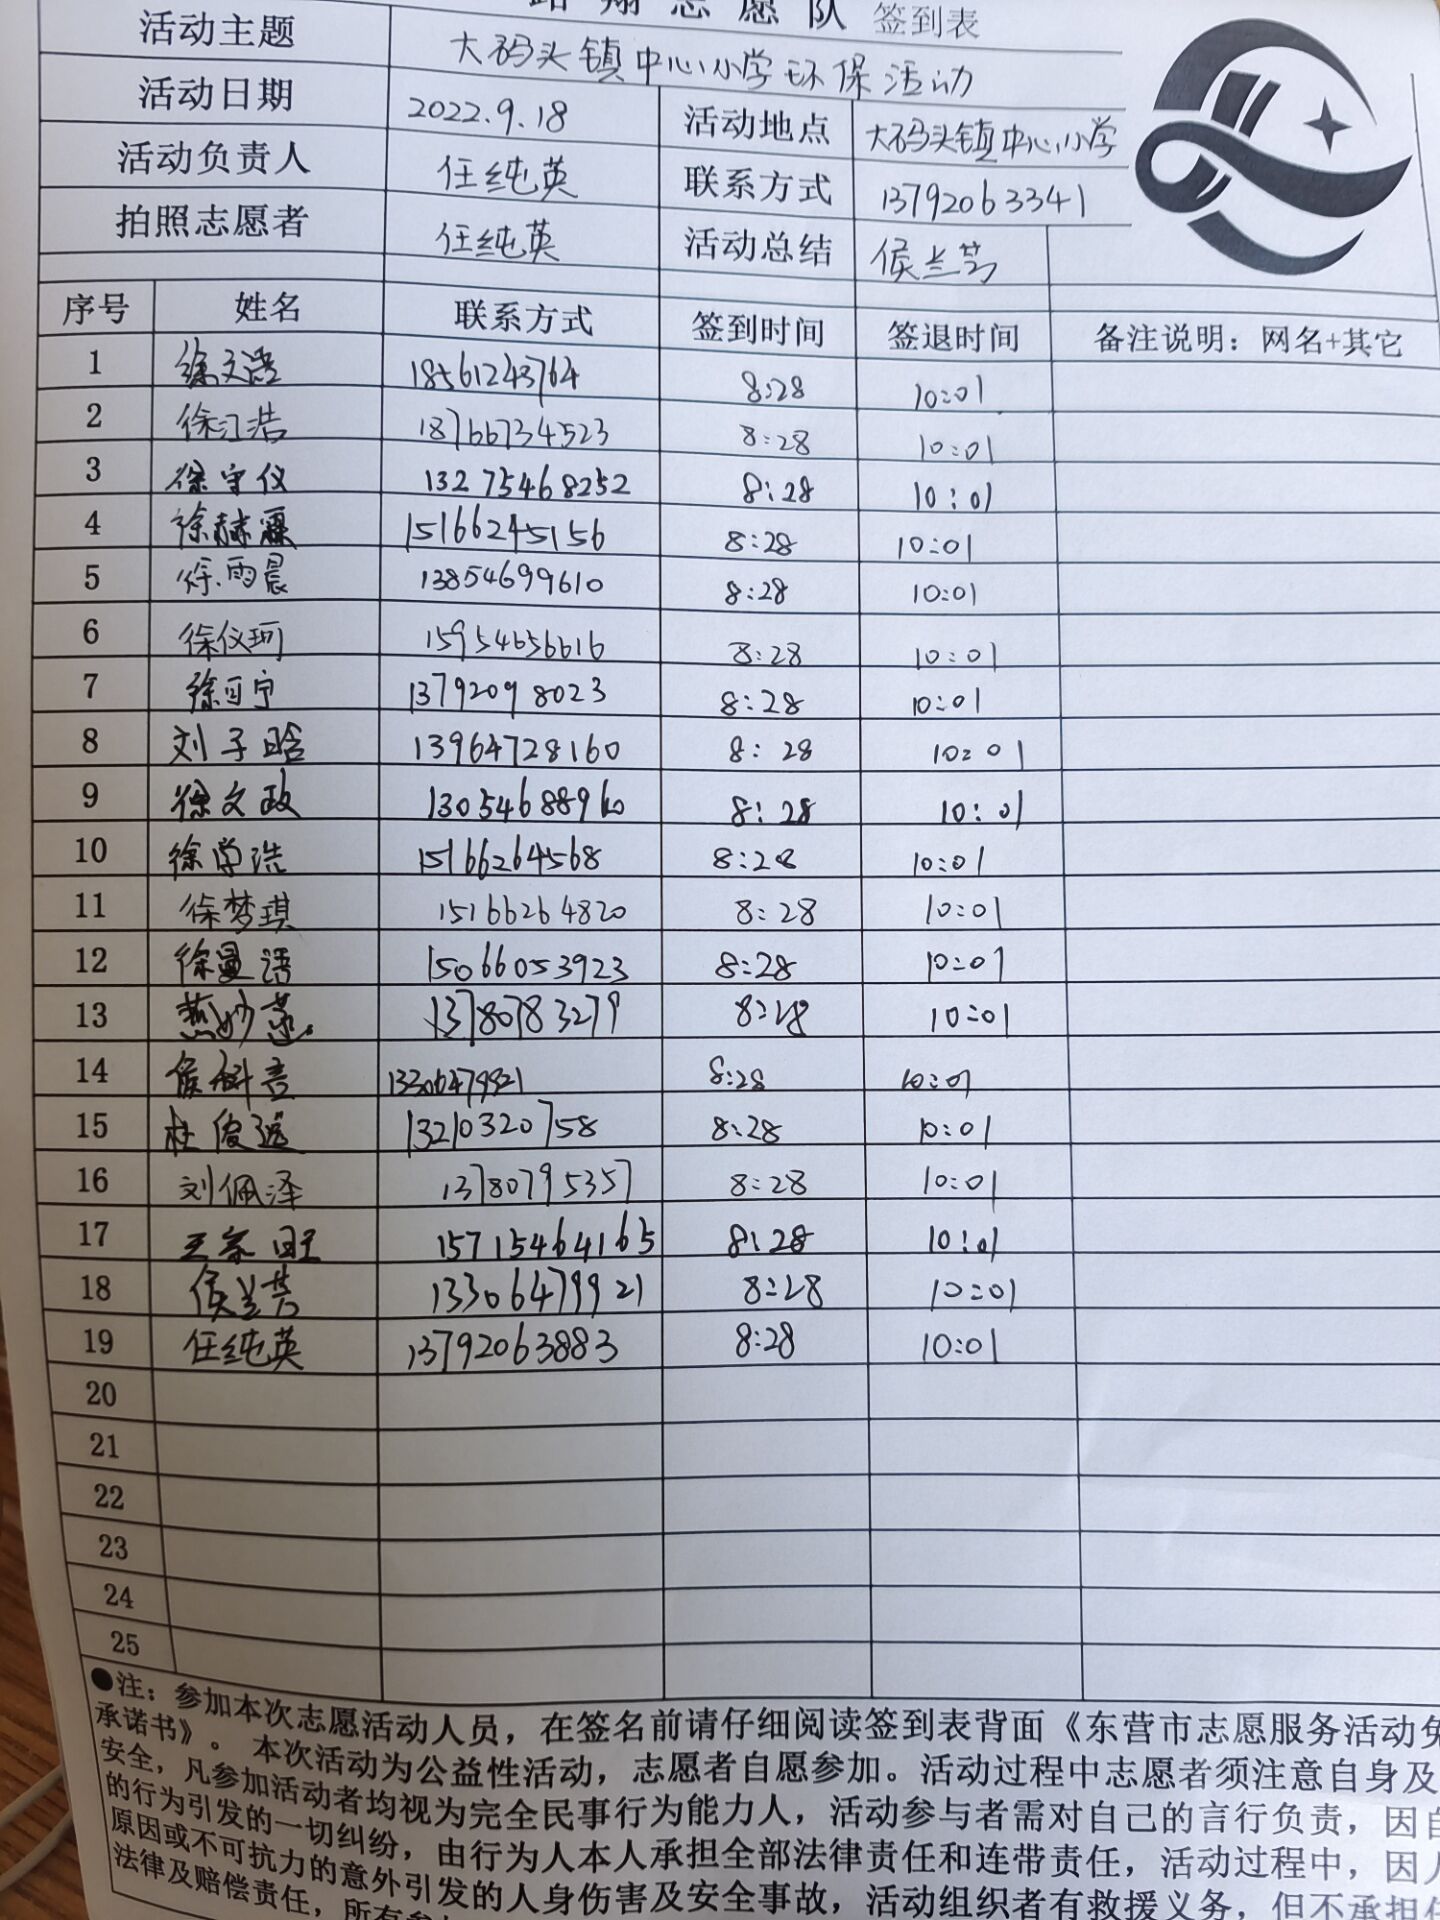 志愿队 签到表
活动主题 大码头镇中心小学环保活动
活动日期 2022.9.18 活动地点 大码头镇中心小学
活动负责人 任纯英 联系方式 13792063341
拍照志愿者 任纯英 活动总结 侯兰芳
序号 姓名 联系方式 签到时间 签退时间 备注说明：网名+其它
1 徐文浩 18561243764 8:28 10:01
2 徐江浩 18766734523 8:28 10:01
3 徐守仪 13275468252 8:28 10:01
4 徐赫霖 15166245156 8:28 10:01
5 徐雨晨 13854699610 8:28 10:01
6 徐仪珂 15954656616 8:28 10:01
7 徐可宁 13792098023 8:28 10:01
8 刘子晗 13964728160 8:28 10:01
9 徐文政 13054688960 8:28 10:01
10 徐学浩 15166264568 8:28 10:01
11 徐梦琪 15166264820 8:28 10:01
12 徐曼语 15066053923 8:28 10:01
13 燕妙 13780783279 8:28 10:01
14 侯 8:28 10:01
15 杜俊 13210320758 8:28 10:01
16 刘佩泽 13780795357 8:28 10:01
17 王家旺 15715464165 8:28 10:01
18 侯兰芳 13306479921 8:28 10:01
19 任纯英 13792063883 8:28 10:01
20
21
22
23
24
25
●注：参加本次志愿活动人员，在签名前请仔细阅读签到表背面《东营市志愿服务活动免
承诺书》。本次活动为公益性活动，志愿者自愿参加。活动过程中志愿者须注意自身及
安全，凡参加活动者均视为完全民事行为能力人，活动参与者需对自己的言行负责，因自
的行为引发的一切纠纷，由行为人本人承担全部法律责任和连带责任，活动过程中，因人
原因或不可抗力的意外引发的人身伤害及安全事故，活动组织者有救援义务，但不承担任
法律及赔偿责任，所有参